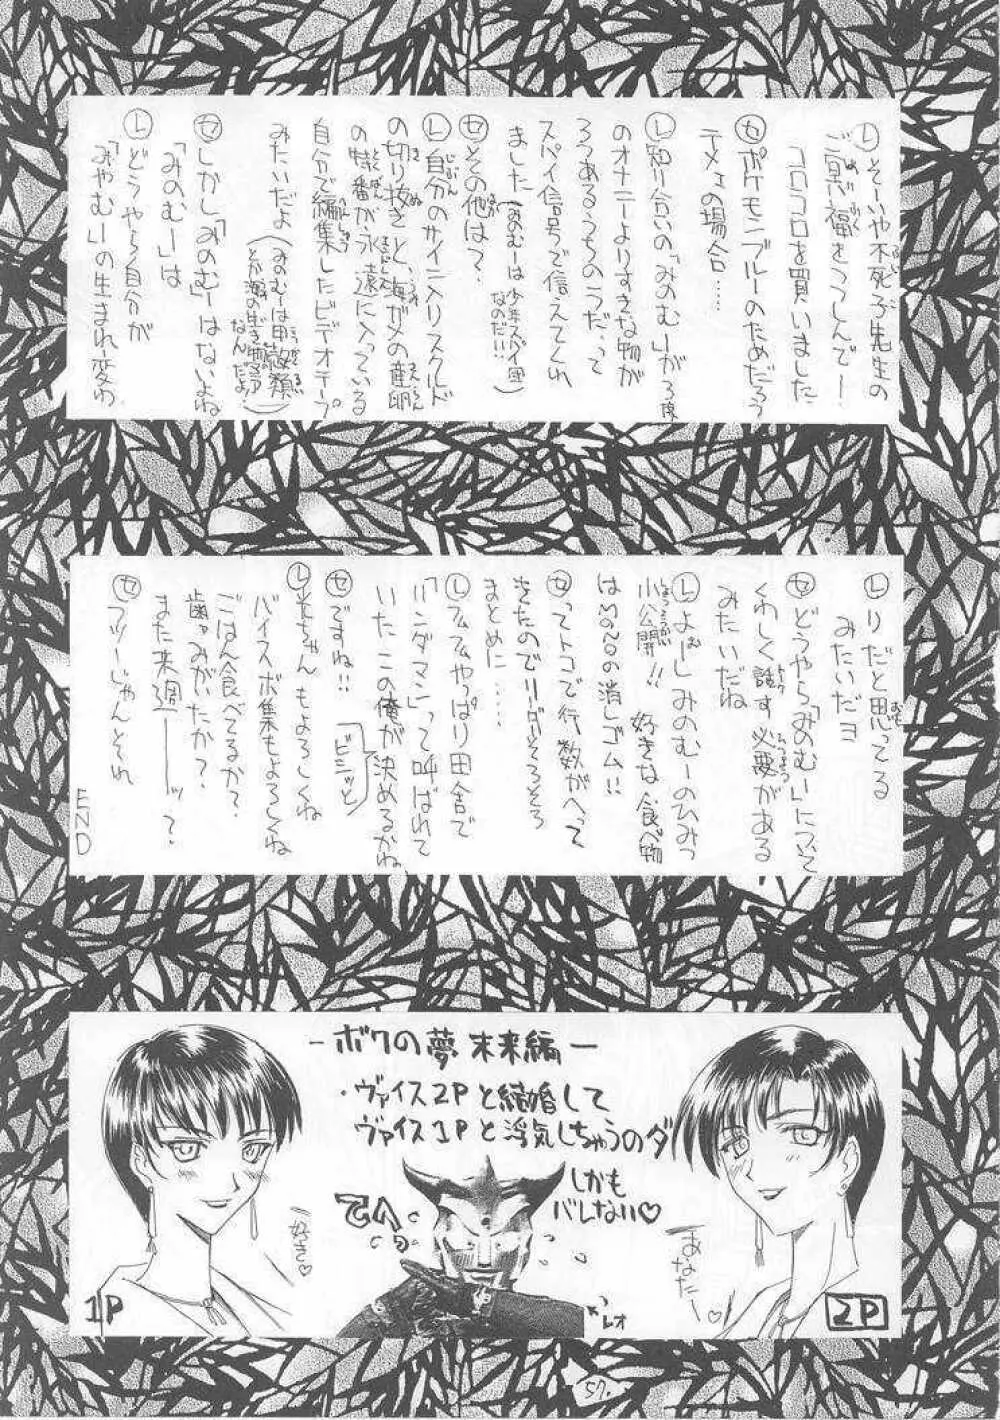 Ⓛそーいや不死子先生の
ご冥福をつつしんでー
コロコロを買いました
Ⓢポケモンブルーのためだろう
テメェの場合……
Ⓛ知り合いの「みのむー」が3度
のオナニーよりすきな物が
3つあるうちの1つだ、って
スパイ信号で伝えてくれ
ました(みのむーは少年スパイ団
なのだ!!)
Ⓢその他は?
Ⓛ自分のサイン入りスクルド
の切り抜きと、海ガメの産卵
の特番が永遠に入っている
自分で編集したビデオテープ
みたいだよ(みのむーは甲殻類
とか海の生き物マニア
なんだよ)
Ⓢしかし「みのむー」はないよね
「みのむー」は
Ⓛどうやら自分が
「みゃむー」の生まれ変わ
Ⓛりだと思ってる
みたいだヨ
Ⓢどうやら「みのむー」について
くわしく話す必要がある
みたいだね
Ⓛよーし みのむーのひみつ
小公開!! 好きな食べ物
はMONOの消しゴム!!
Ⓢってトコで行数がへって
きたのでリーダーそろそろ
まとめに……
Ⓛフムフムやっぱり田舎で
「ハンダマン」って呼ばれて
いたこの俺が決めるかね
Ⓢですね!!
ビシッと
Ⓛちゃんもよろしくね
バイスボ集もよろしくね
ごはん食べてるか?
歯みがいたか?
また来週ーーッ?
Ⓢフツーじゃんそれ
END
-ボクの夢 未来編-
・ヴァイス2Pと結婚して
ヴァイス1Pと浮気しちゃうのダ
しかも
バレない♡
てへっ
好き♡
あなたー♡
レオ
1P
2P
57.